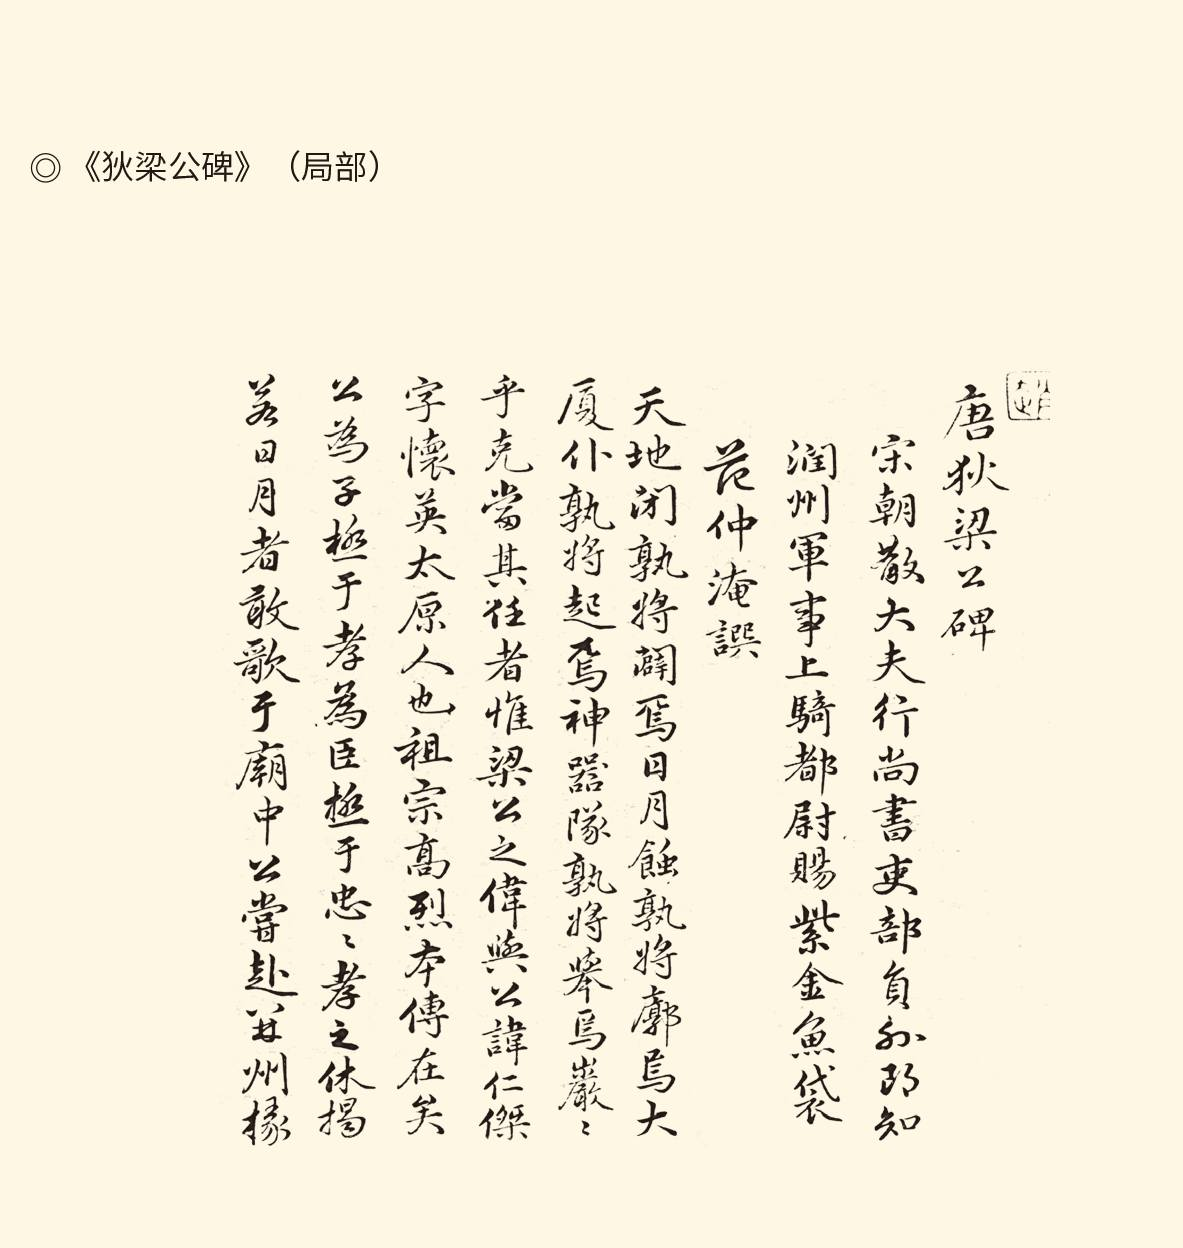 ◎《狄梁公碑》（局部）
唐狄梁公碑
宋朝散大夫行尚書吏部員外郎知
潤州軍事上騎都尉賜紫金魚袋
范仲淹譔
天地閉孰將闢焉日月蝕孰將廓焉大
厦仆孰將起焉神器隊孰將舉焉巖〻
乎克當其任者惟梁公之偉與公諱仁傑
字懷英太原人也祖宗高烈本傳在矣
公為子極于孝為臣極于忠〻孝之休揭
若日月者敢歌于廟中公嘗赴并州掾